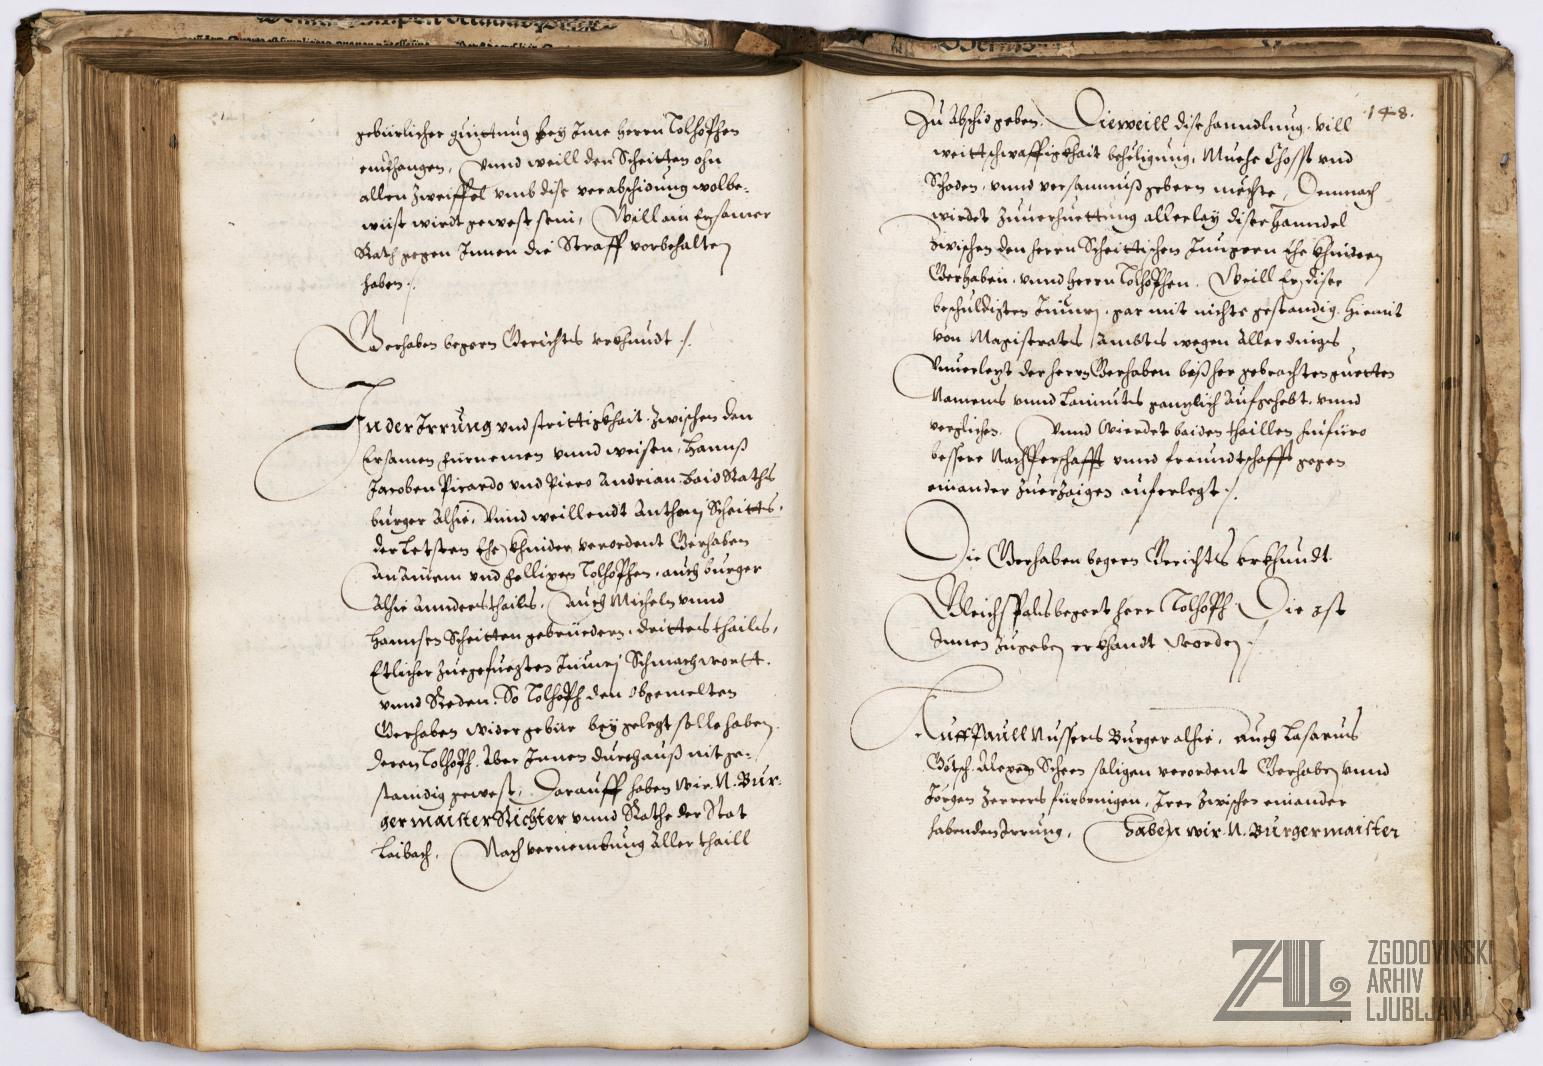 gebürlicher quittung bey Ime herrn Tolhopfen
emphangen, Vnnd weill den Scheitten ohn
allen Zweiffel vmb dise verabschidung wolbe-
wüst wirdt gewest sein, Will ain Ersamer
Rath gegen Innen die Straff vorbehalten
haben /.
Gerhaben begern Gerichts erkhundt /.
In der Irrung vnd strittigkhait Zwischen den
Ersamen fürnemen vnnd weisen, Hannß
Jacoben Picardo vnd Piero Andrian baid Raths
burger Alhie, Vnnd weillendt Anthonj Scheitts,
der letsten Ehe khinder verordent Gerhaben
An ainem vnd fellixen Tolhopfen, auch burger
Alhie Annders thails, auch Micheln vnnd
Hannsen Scheitten gebrüedern, drittens thails,
Etlicher zuegefuegten Iniurj Schmachwortt,
vnnd Reden, So Tolhopf den obgemelten
Gerhaben wider gebür beygelegt solle haben,
deren Tolhopf Aber Innen durchauß nit ge-
standig gewest, Darauff haben wir N. Bur-
germaister Richter vnnd Rathe der Stat
Laibach, Nach vernembung Aller thaill
148.
Zu Abschid geben, Dieweill dise hanndlung vill
weittschwaiffigkhait behelligung, Muehe Chosst vnd
Schaden, vnnd versaumnuß gebern mechte, Demnach
wirdet Zuuerhuettung allerlay diser Hanndel
Zwischen den herrn Scheittischen Jungern Ehe khindern
Gerhaben, vnnd herrn Tolhopfen, Weill Er diser
beschuldigten Iniurj, gar mit nichte gestandig, hiemit
von Magistrats Ambts wegen Aller dings
Vnuerlezt der herrn Gerhaben bißher gebrachten guetten
Namens vnnd Leimuts genzlich Aufgehebt, vnnd
verglichen, Vnnd wierdet baiden thaillen hinfüro
bessere Nachperschafft vnnd freundtschafft gegen
einander Zuerzaigen auferlegt /.
Die Gerhaben begern Gerichts Erkhundt
Gleichsfals begert herr Tolhopf Die ist
Innen zugeben erkhandt worden /.
Auff Paull Nussers Burger alhie, auch Lasarus
Götsch Alexen Scheen säligen verordent Gerhaben vnnd
Jörgen Zerrers fürbringen, Irer Zwischen einander
habenden Irrung, Haben wir N. Burgermaister
ZAL ZGODOVINSKI
ARHIV
LJUBLJANA